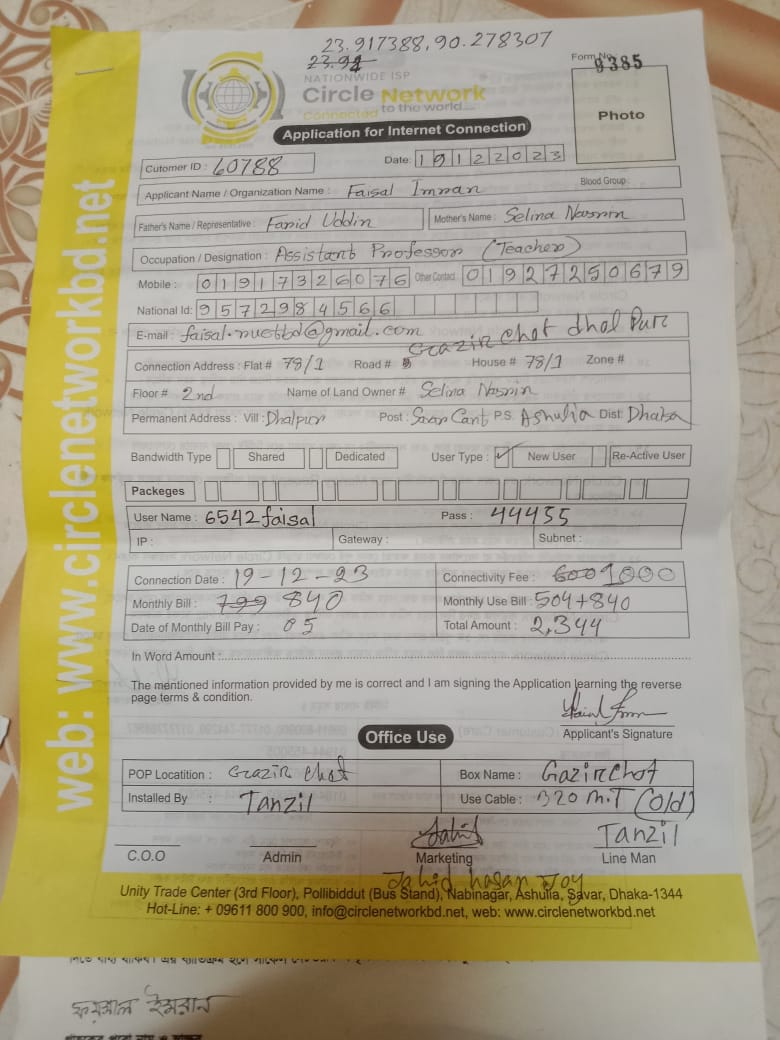 23.917388,90.278307
23.92
Form No: 9385
NATIONWIDE ISP
Circle Network
Connected to the world...
Photo
Application for Internet Connection
Cutomer ID : 60788
Date: 19122023
Applicant Name / Organization Name : Faisal Imran
Blood Group :
Father's Name / Representative : Farid Uddin
Mother's Name : Selina Nasrin
Occupation / Designation : Assistant Professor (Teacher)
Mobile : 01917326076 Other Contact: 01927250679
National Id: 9572984566
E-mail : faisal.nuetbd@gmail.com
Gazir chot dhal Pur
Connection Address : Flat # 78/1 Road # House # 78/1 Zone #
Floor # 2nd Name of Land Owner # Selina Nasrin
Permanent Address : Vill : Dhalpur Post : Savar Cant P.S. Ashulia Dist: Dhaka
Bandwidth Type Shared Dedicated User Type : ✓ New User Re-Active User
Packeges
User Name : 6542faisal Pass : 44455
IP : Gateway : Subnet :
Connection Date : 19-12-23 Connectivity Fee : 600 1000
Monthly Bill : 799 840 Monthly Use Bill : 504+840
Date of Monthly Bill Pay : 05 Total Amount : 2,344
In Word Amount :
The mentioned information provided by me is correct and I am signing the Application learning the reverse
page terms & condition.
Applicant's Signature
Office Use
POP Locatition : Gazir chot Box Name : Gazirchot
Installed By : Tanzil Use Cable : 320 m.T (Old)
Jahid Tanzil
C.O.O Admin Marketing Line Man
Jahid hasan Joy
Unity Trade Center (3rd Floor), Pollibiddut (Bus Stand), Nabinagar, Ashulia, Savar, Dhaka-1344
Hot-Line: + 09611 800 900, info@circlenetworkbd.net, web: www.circlenetworkbd.net
web: www.circlenetworkbd.net
ফয়সাল ইমরান